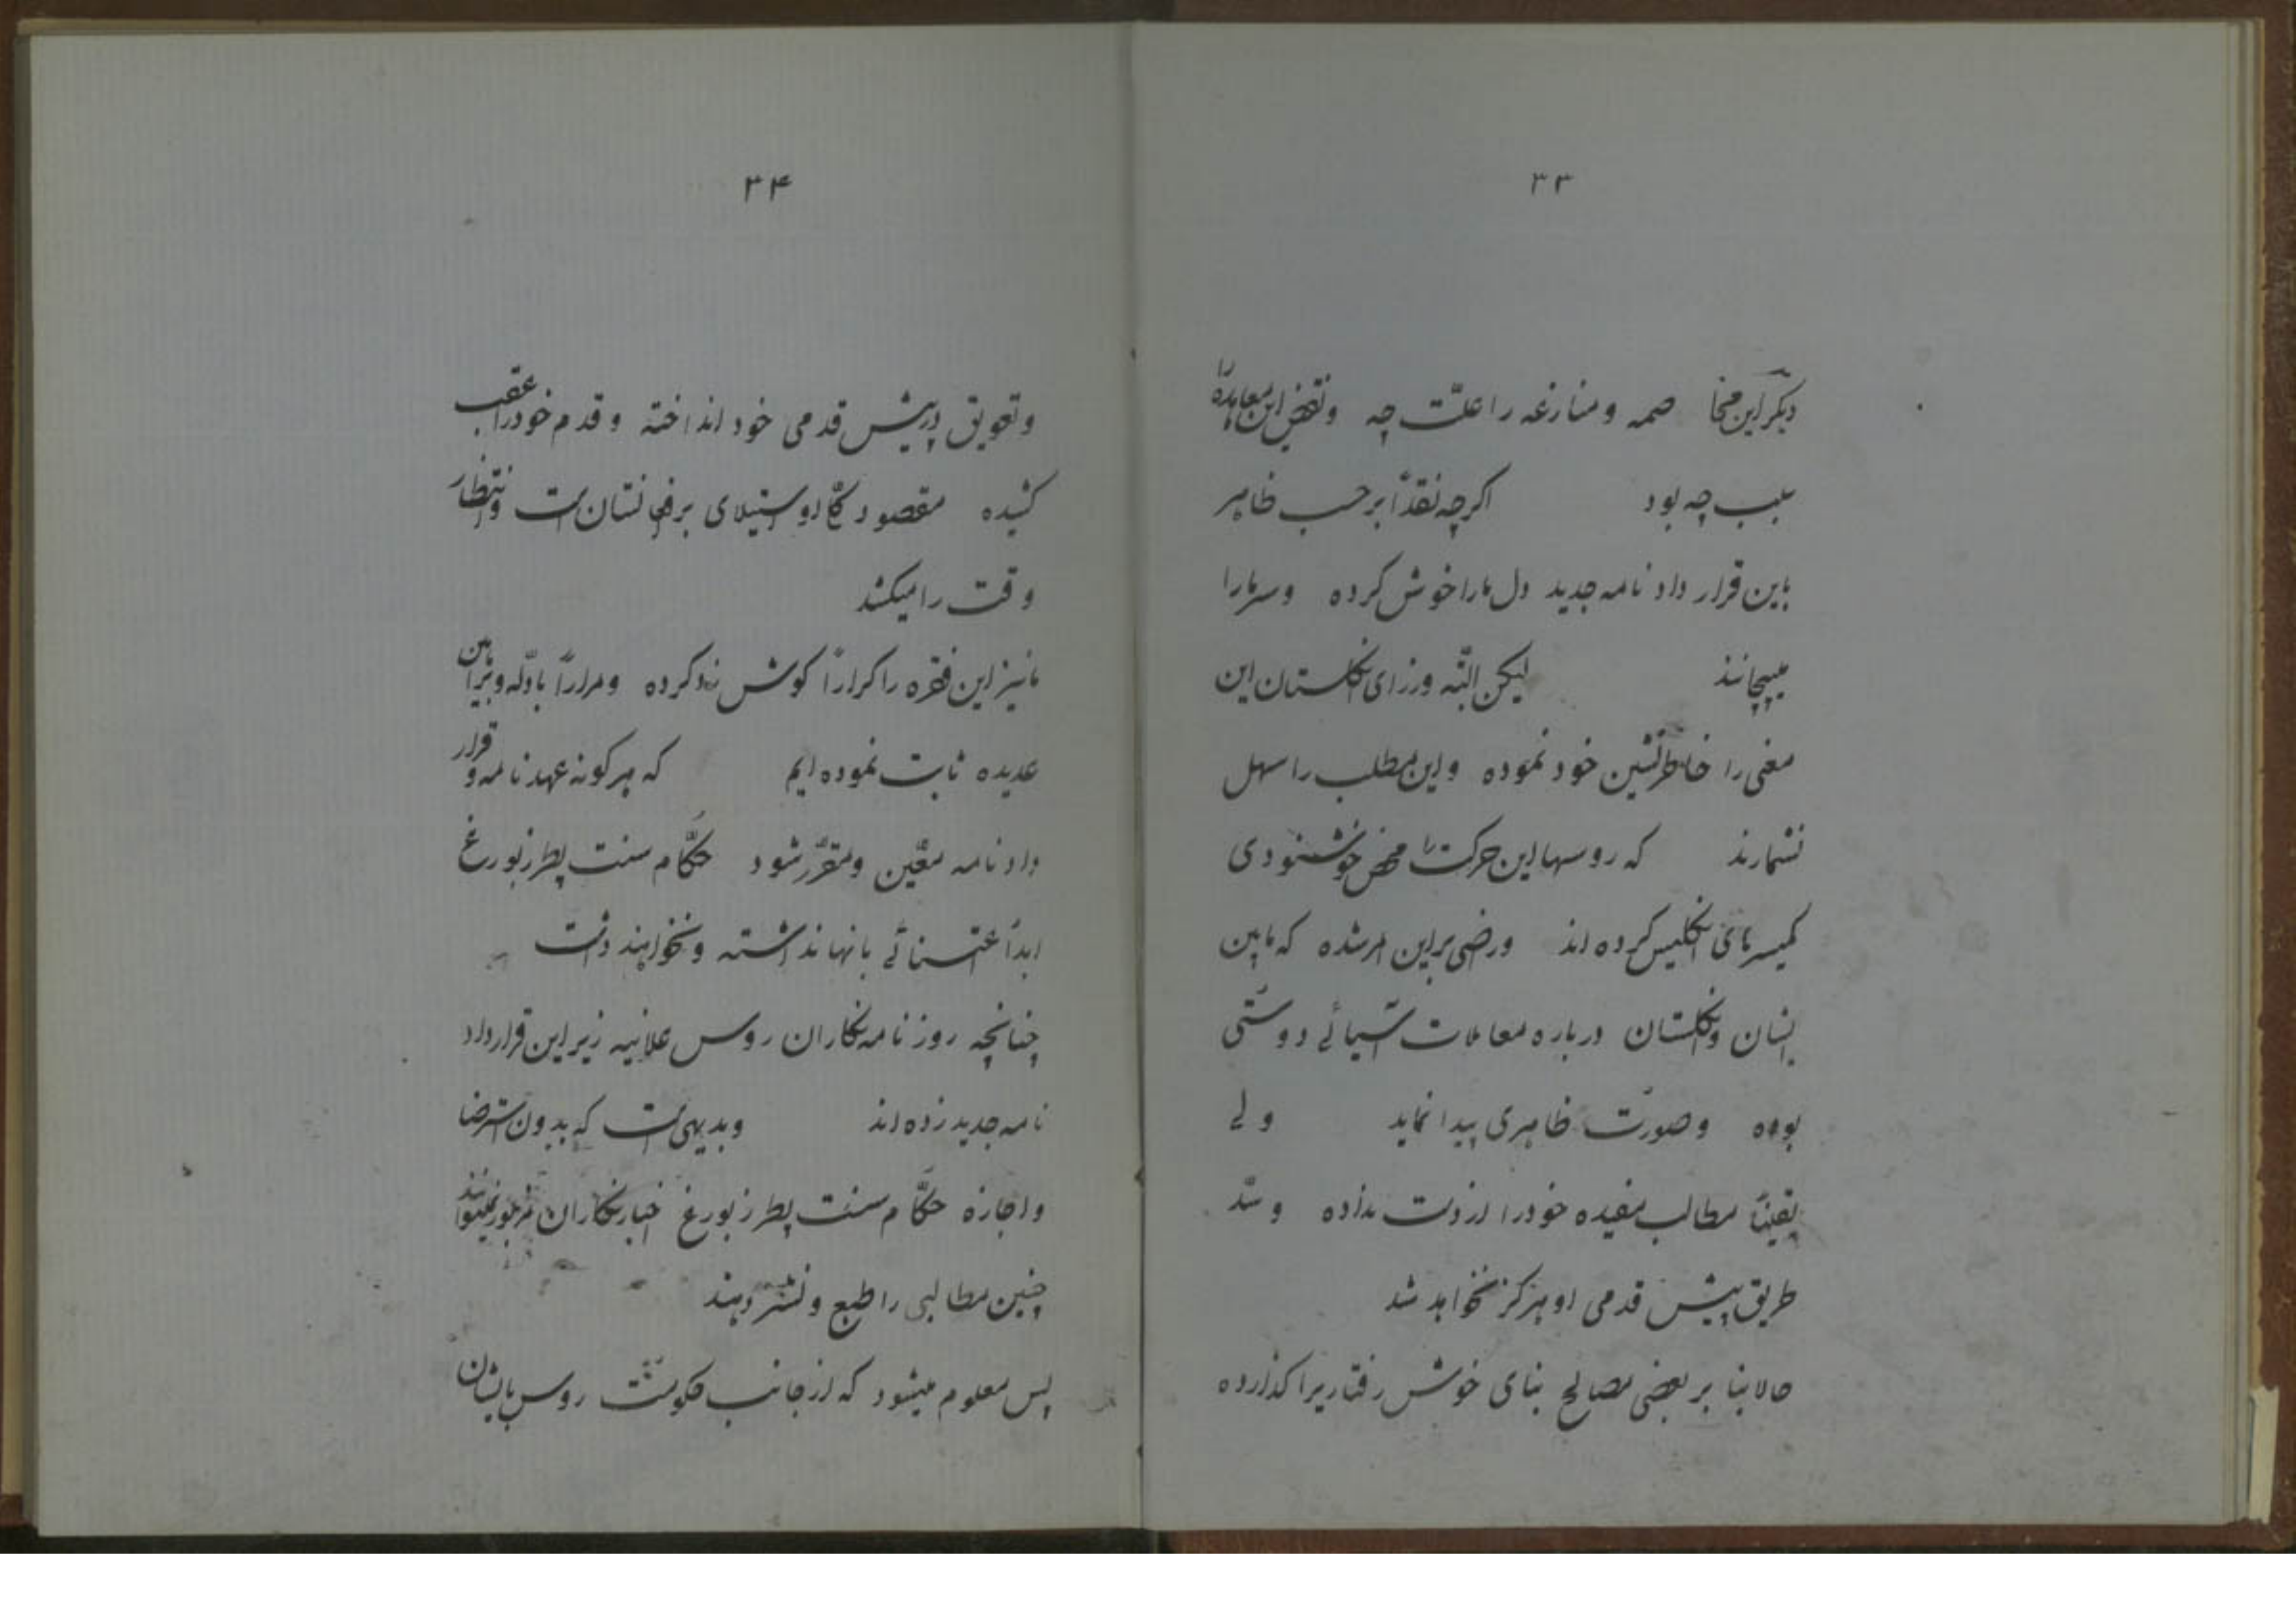 ۳۳
دیگر این مخا صمه و منازعه را علّت چه و نقض این معاهده را
سبب چه بود اگرچه نقداً بر حسب ظاهر
باین قرار داد نامه جدید دل ما را خوش کرده و سر ما را
میپیچانند لیکن البتّه وزرای انگلستان این
معنی را خاطرنشین خود نموده و این مطلب را سهل
نشمارند که روسها این حرکت را محض خوشنودی
کمیسرهای انگلیس کرده اند و راضی بر این امر شده که مابین
ایشان و انگلستان درباره معاملات آسیائی دوستی
بوده و صورت ظاهری پیدا نماید ولی
یقیناً مطالب مفیده خود را از دست نداده و سدّ
طریق پیش قدمی او هرگز نخواهد شد
حالا بنا بر بعضی مصالح بنای خوش رفتاریرا گذارده
۳۴
و تعویق در پیش قدمی خود انداخته و قدم خود را عقب
کشیده مقصود کلّی او استیلای بر افغانستان است و انتظار
وقت را میکشد
ما نیز این فقره را کراراً گوش زد کرده و مراراً با ادلّه و براهین
عدیده ثابت نموده ایم که هر گونه عهد نامه و قرار
داد نامه معیّن و مقرّر شود حکّام سنت پطرزبورغ
ابداً اعتنائی بانها نداشته و نخواهند داشت
چنانچه روزنامه نگاران روس علانیه زیر این قرارداد
نامه جدید زده اند و بدیهی است که بدون استرضا
و اجازه حکّام سنت پطرزبورغ اخبار نگاران مزبور نمیتوانند
چنین مطالبی را طبع و نشر دهند
پس معلوم میشود که از جانب حکومت روس بایشان